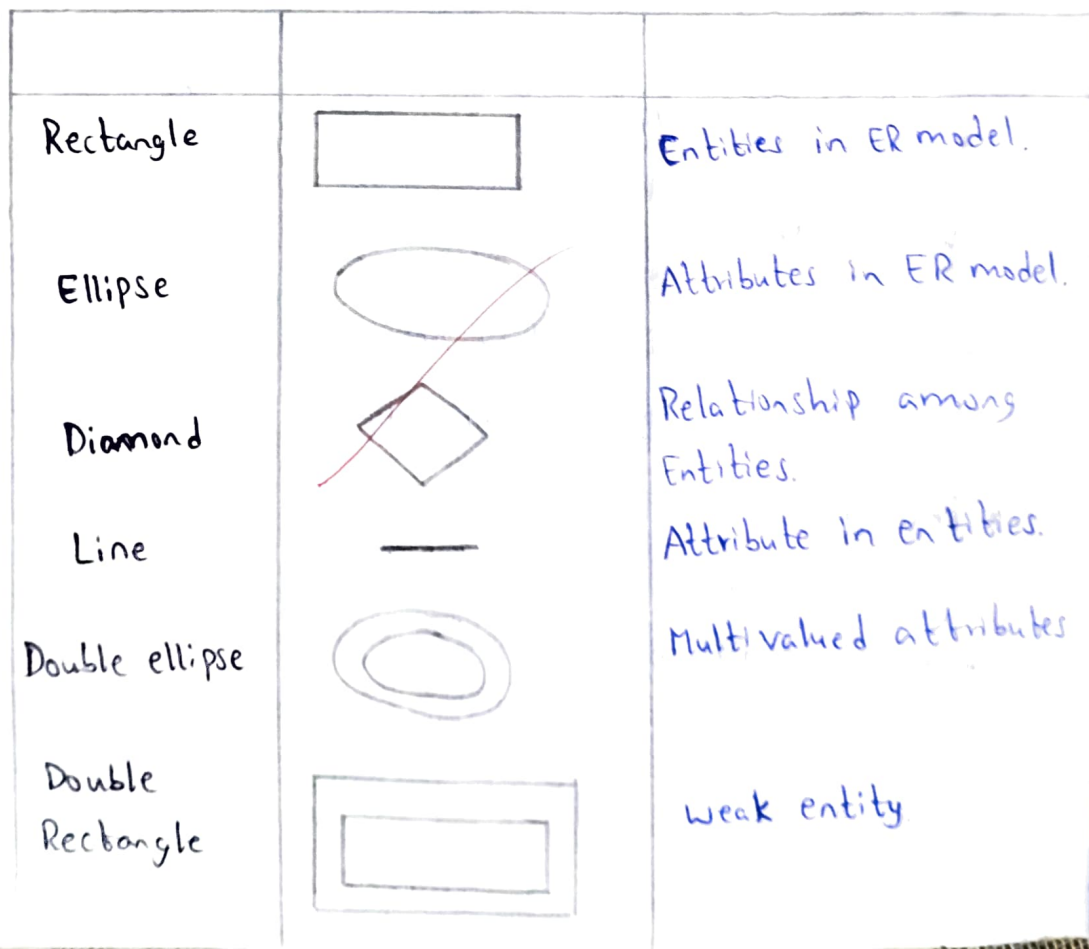 Rectangle
Entities in ER model.
Ellipse
Attributes in ER model.
Diamond
Relationship among
Entities.
Line
Attribute in entities.
Double ellipse
Multivalued attributes
Double
Rectangle
weak entity